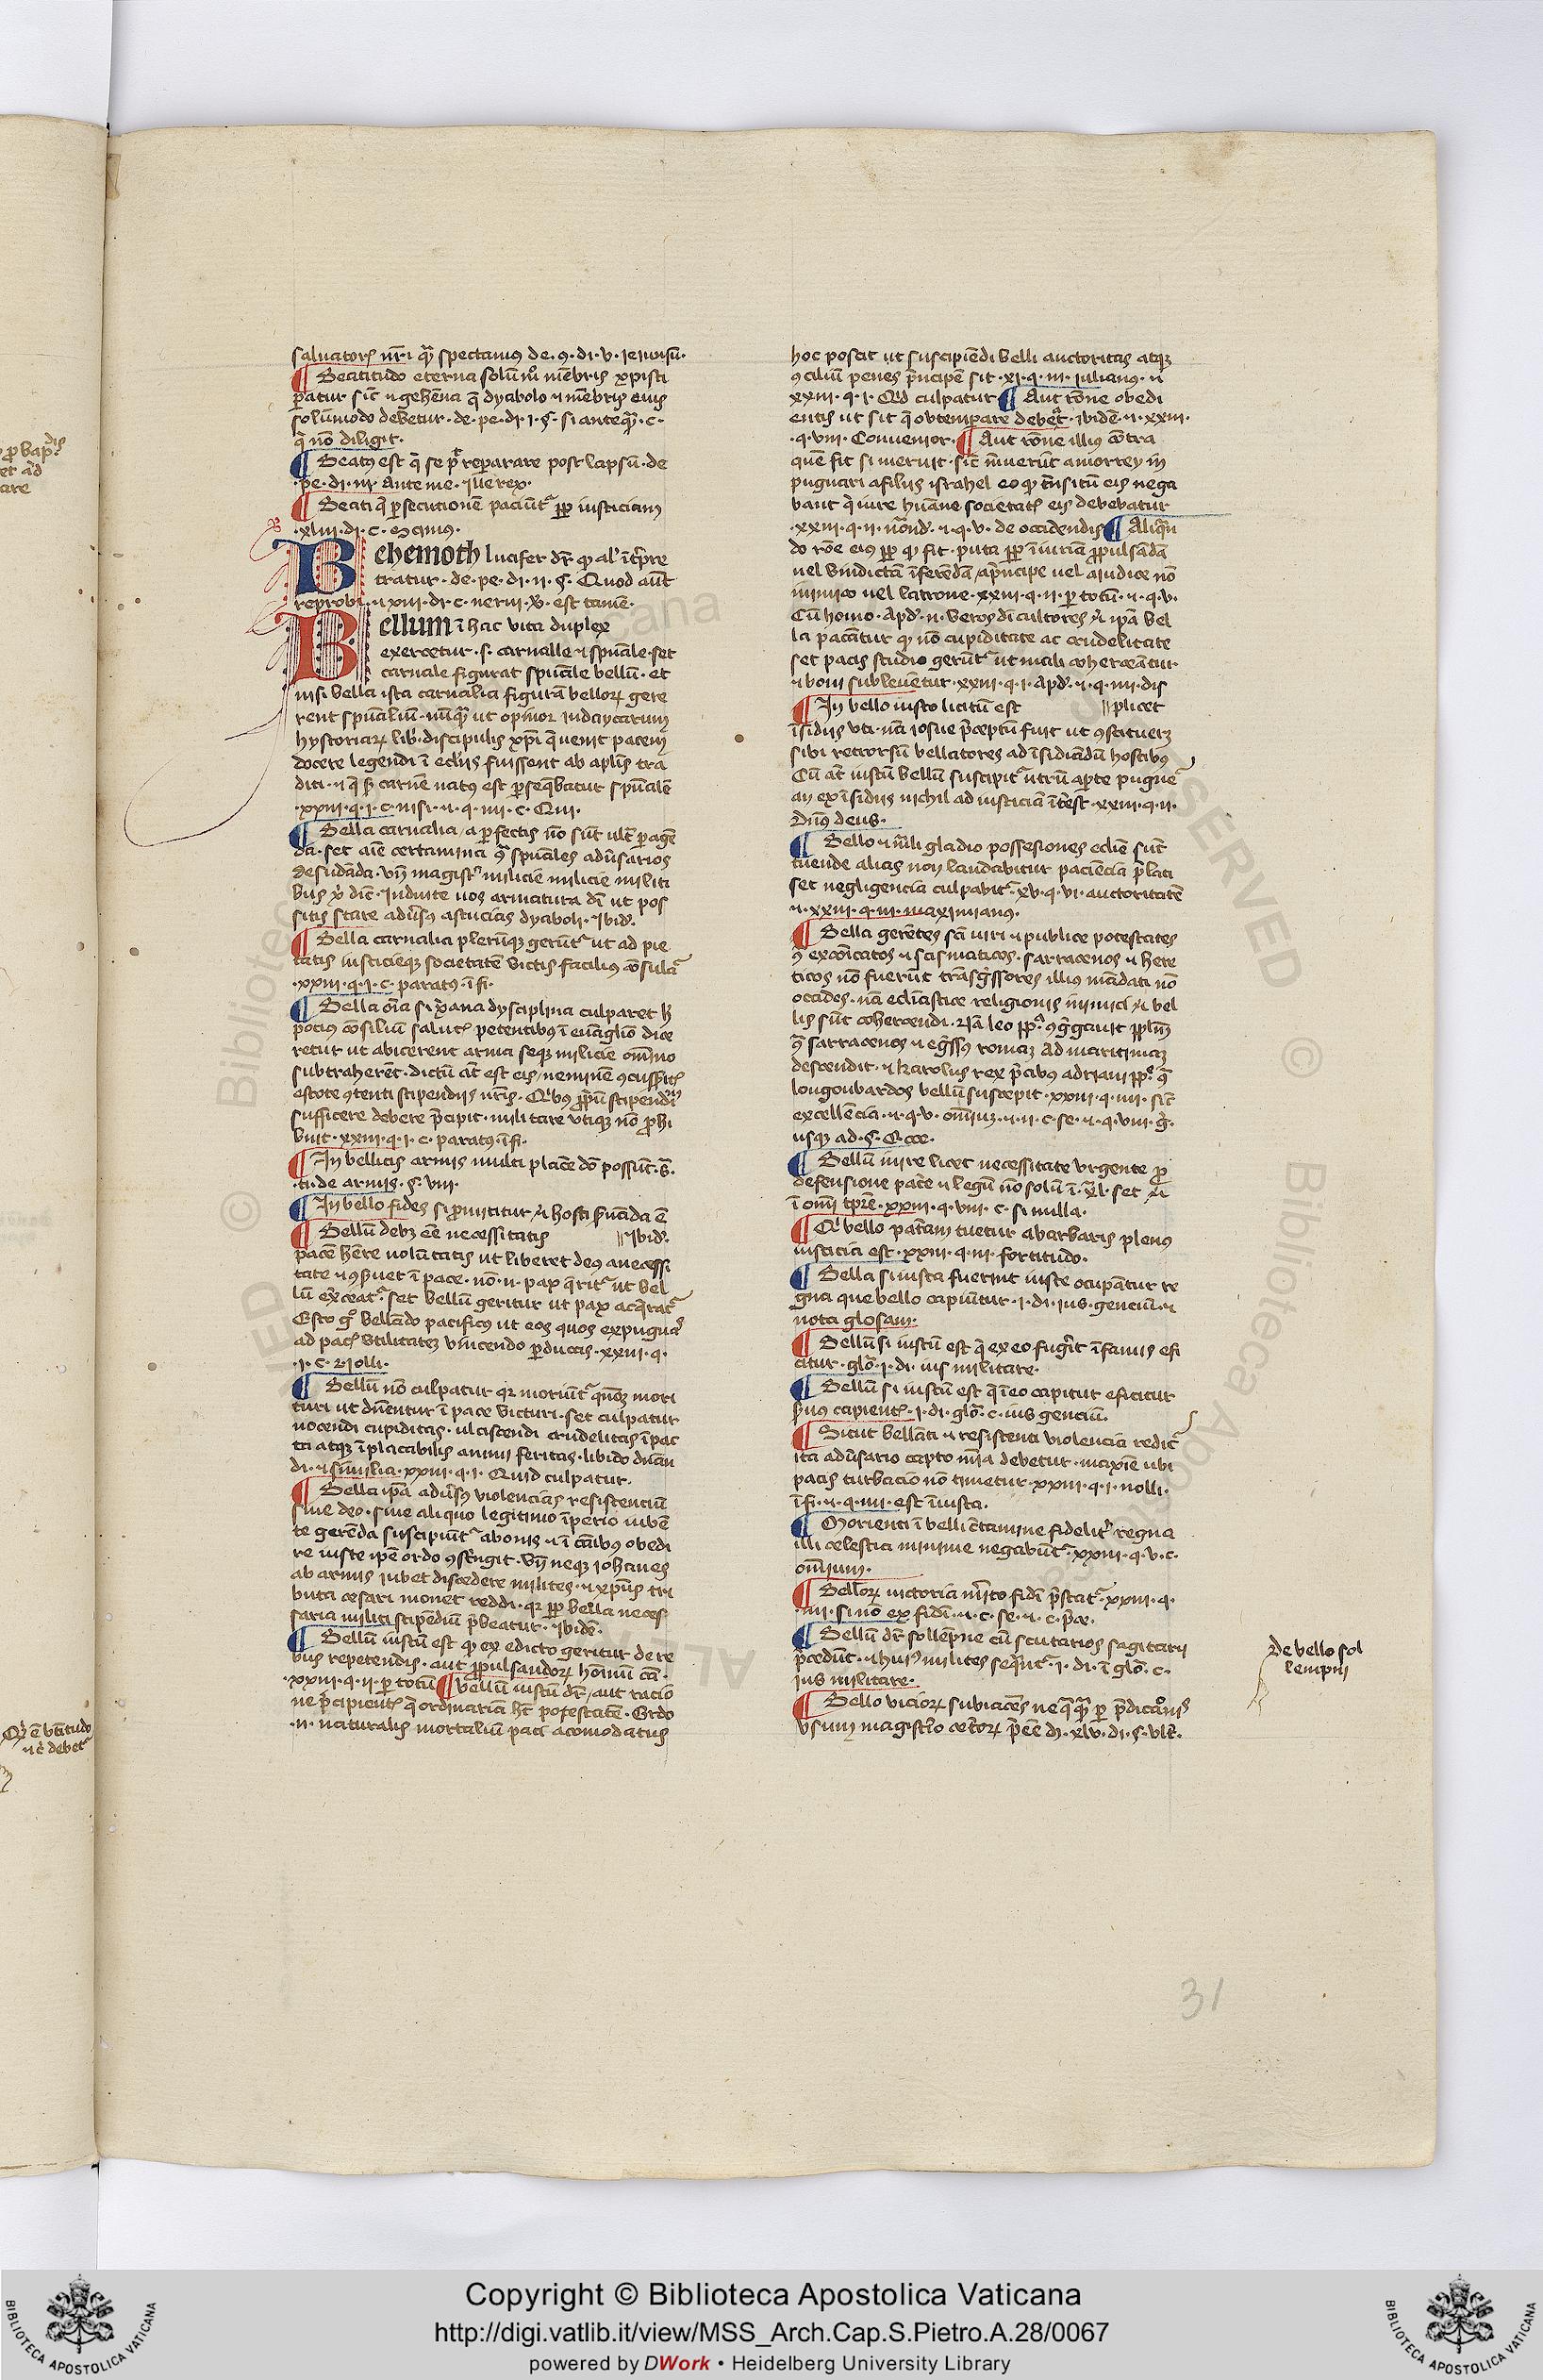 saluatorꝭ nr̄i qͣ spectamꝰ de. ꝯ. di. v. ieiuniū.
¶ Beatitudo eterna solū m̊ mēbris xpisti
ꝑatur sic̄ ⁊ gehēna q̄ dyabolo ⁊ mēbris eius
solūmodo debetur. de. pe. di. i. §. si anteqͣ. c.
qͥ nō diligit.
¶ Beatꝰ est qͥ se pͭ reꝑarare post lapsū. de
pe. di. iii. ante me. ille rex.
¶ Beati qͥ ꝑsecutionē paciūtͬ ꝓp̄ iusticiam
.xliii. di. c. Scimus.
Behemoth lucifer dr̄ qͥ al' īt̄pre
tratur. de. pe. di. ii. §. Quod aūt
reprobi. ⁊ xiii. di. c. nerui. ꝟ. est tamē.
Bellum ī hac vita duplex
exercetur. s. carnalle ⁊ spūale. set
carnale figurat spūale bellū. et
nisi bella ista carnalia figurā belloꝝ gere
rent spūaliū. nūqͣ ut opinor iudaycarum
hystoriaꝝ lib'. discipulis xp̄i qͥ uenit pacem
docere legendi ī eccl'iis fuissent ab apl'is tra
diti. ⁊ qͥ ẜ carnē natꝰ est ꝑseq̄batur spūalē
.xxiii. q. i. c. nisi. ⁊. q. iiii. c. Qui.
¶ Bella carnalia / a ꝑfectis nō sūt ult' ꝑagē
da. set aīe certamina qͣ spūales adu'sarios
desudāda. vn̄ magistͬ milicie milicie militi
bus ꝟ dic̄. Induite uos armatura dī ut pos
sitis stare adu'sꝰ astucias dyaboli. Ibid'.
¶ Bella carnalia plerūqꝫ gerūtͬ ut ad pie
tatis iusticieqꝫ societatē victis facilius ꝯsulaͬ
.xxiii. q. i. c. paratꝰ. ī fi.
¶ Bella oīa si xp̄iana dysciplina culparet h'
pociꝰ ꝯsiliū salutꝭ petentibꝰ ī euāglio dice
retur ut abicerent arma seqꝫ milicie omīno
subtraherēt. dictū aūt est eis / neminē ꝯcuss'itꝭ
estote ꝯtenti stipendiis ur̄is. Qͥbꝰ ꝓp̄ū stipendiū
sufficere debere p̄cipit. militare vtiqꝫ nō ꝓhi
buit. xxiii. q. i. c. paratꝰ. ī fi.
¶ In bellicis armis multi placē dō possūt. s̄.
ti. de armis. §. viii.
¶ In bello fides si ꝓmittitur ⁊ hosti ẜuāda ē
¶ Bellū debꝫ eē necessitatis // Ibid'.
pacē h'ere uolūtatis ut liberet deꝰ a necessi
tate ⁊ ꝯẜuet ī pace. nō. n. pax q̄ritͬ ut bel
lū ex̄ceatͬ. set bellū geritur ut pax acq̄ratͬ
Esto gͦ bellādo pacificꝰ ut eos quos expugnaͬ
ad pacꝭ vtilitatem vincendo ꝑducas. xxiii. q.
.i. c. Nolli.
¶ Bellū nō culpatur qꝛ moriūtͬ qn̄qꝫ mori
turi ut dn̄entur ī pace victuri. set culpatur
nocendi cupiditas. ulciscendi crudelitas īpac
tā atqꝫ īplacabilis animi feritas. libido dn̄an
di. ⁊ similia. xxiii. q. i. Quid culpatur.
¶ Bella ip̄a adu'sꝰ violencias resistenciū
siue deo. siue aliquo legitimo īperio iubē
te gerēda suscipiūtͬ a bonis. ⁊ ī cāibꝰ obedi
re iuste ip̄e ordo ꝯstͥngit. Vn̄ neqꝫ iohanes
ab armis iubet discedere milites. ⁊ xp̄us tri
buta cesari monet reddi. qꝛ ꝓp̄ bella neces
saria militi stipēdiū p̄beatur. Ibidē.
¶ Bellū iustū est qͥ ex edicto geritur de re
bus repetendis. aut ꝓpulsandoꝝ hoīnū cā.
.xxiii. q. ii. ꝑ totū ¶ Bellū iustū dr̄ / aut racio
ne p̄cipientꝭ qͥ ordinariā h't potestatē. Ordo
.n. naturalis mortaliū paci acomodatus
hoc poscit ut suscipiēdi belli auctoritas atqꝫ
ꝯciliū penes p̄ncipē sit. xi. q. iii. iulianꝰ. ⁊
xxiii. q. i. Qͥd culpatur ¶ Aut rōne obedi
entis ut sit qͥ obtemꝑare debetͬ. ibidē. ⁊. xxiii.
.q. viii. Conuenior. ¶ Aut rōne illiꝰ ꝯtra
quē fit si meruit. sic̄ m̄uerūt amorrey in
pugnari a filiis israhel eo qͥ tn̄situ eis nega
bant qͥ iure hūane societatꝭ eis debebatur
.xxiii. q. ii. n̄ond'. ⁊. q. v. de occidendis ¶ Aliqn̄
do rōe eiꝰ ꝓp̄ qͥ fit. puta ꝓp̄ īiuriā ꝓpulsādā
uel vindictā īferēdā / a p̄ncipe uel a iudice nō
inimico uel latrone. xxiii. q. ii. ꝑ totū. ⁊. q. v.
Cū homo. apd'. n. veros dī cultores ⁊ ip̄a bel
la pacātur qͥ nō cupiditate ac crudelitate
set pacis studio gerūtͬ ut mali coherceātur
⁊ boni subleuētur. xxiii. q. i. apd'. ⁊. q. iiii. dis
¶ In bello iusto licitū est // plicet
īsidiis vti. nā iosue p̄ceptū fuit ut ꝯstitueret
sibi retrorsū bellatores ad īsidiādū hostibꝰ
Cū aūt iustū bellū suscipitͬ utrū aꝑte pugnetͬ
an ex īsidiis nichil ad iusticiā īterest. xxiii. q. ii.
dn̄s deus.
¶ Bello ⁊ m̄li gladio possesiones eccl'ie sūt
tuende alias non laudabitur paciēcia p̄lati
set negligencia culpabitͬ. xv. q. vi. auctoritatē
⁊. xxiii. q. iii. maximianꝰ.
¶ Bella gerētes sc̄i uiri ⁊ publice potestates
ꝯ excōicatos ⁊ scismaticos. sarracenos ⁊ here
ticos nō fuerūt trāsgssores illius mādati nō
occides. nā eccl'iastice religionis inimici ⁊ bel
lis sūt coherecendi. Nā leo pp̄ͣ ꝯgregauit ppl'm
qͣ sarracenos ⁊ eg̃ssꝰ romam ad maritimam
descendit. ⁊ karolus rex p̄cibꝰ adriani pp̄. qͣ
longoubardos bellū suscepit. xxiii. q. iiii. sic̄
excellēcia. ⁊. q. v. omniū. ⁊. ii. c. se. ⁊. q. viii. g̊.
usqꝫ ad. §. Ecce.
¶ Bellū inire licet necessitate vrgente ꝓ
defensione pat̄e ⁊ legū nō solū ī. xl'. set ⁊
ī omī tp̄re. xxiii. q. viii. c. si nulla.
¶ Qͥ bello pat̄am tuetur a barbaris plenꝰ
iusticia est. xxiii. q. iii. fortitudo.
¶ Bella si iusta fuerint iuste ocupātur re
gna que bello capiūtur. i. di. ius. genciū. ⁊
nota glosam.
¶ Bellū si iustū est qͥ ex eo fug'it īfamis efi
citur. glō. i. di. ius militare.
¶ Bellū si iustū est qͥ ī eo capitur eficitur
ẜuus capientꝭ. i. di. glō. c. ius genciū.
¶ Sicut bellāti ⁊ resistenti violencia rediͬ
ita adu'sario capto mīa debetur. maxīe ubi
pacis turbacio nō timetur. xxiii. q. i. nolli.
ī fi. ⁊. q. iiii. est īiusta.
¶ Morienti ī belli c̄tamine fidelit' regna
illi celestia minime negabūtͬ. xxiii. q. v. c.
omīum.
¶ Belloꝝ uictoria m̄ito fidī p̄statͬ. xxiii. q.
.iii. si nō ex fidī. ⁊. c. se. ⁊. c. p̄ce.
¶ Bellū dr̄ sollēpne cū scutarios sagitarii
p̄cedūt. ⁊ huiꝰ milites seq̄ntͬ. i. di. ī glō. c.
ius militare.
¶ Bello vicioꝝ subiacēs neqͣqͣ ꝑ p̄dicaīoīs
vsum magist'io cet̄oꝝ p̄eē dꝫ. xlv. di. §. vlt'.
De bello sol
lempni
31
Copyright © Biblioteca Apostolica Vaticana
http://digi.vatlib.it/view/MSS_Arch.Cap.S.Pietro.A.28/0067
powered by DWork • Heidelberg University Library
BIBLIOTECA APOSTOLICA VATICANA
BIBLIOTECA APOSTOLICA VATICANA